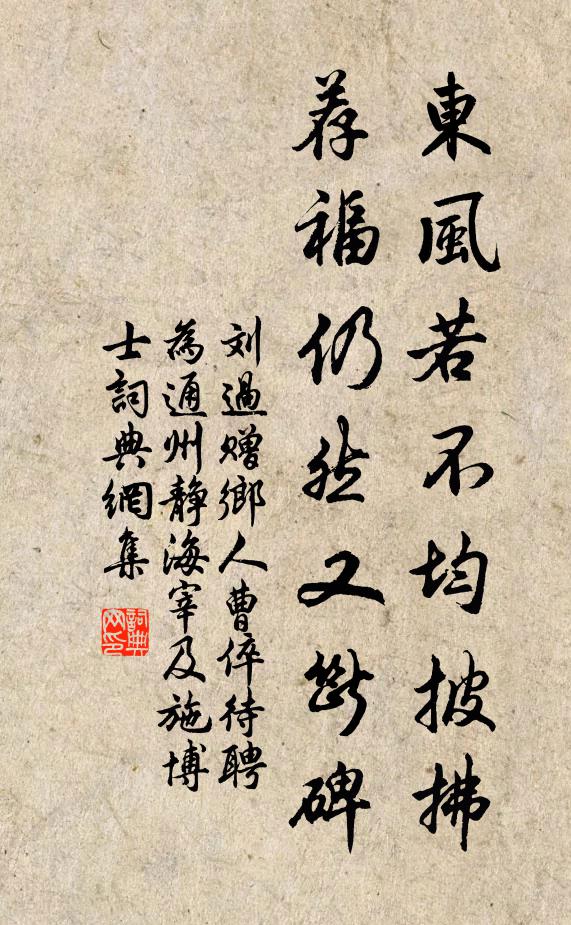 東風若不均披拂
荐福仍然又斷碑
刘過贈鄉人曹倅待聘
為通州靜海宰及施博
士詞典網集
詞典网印